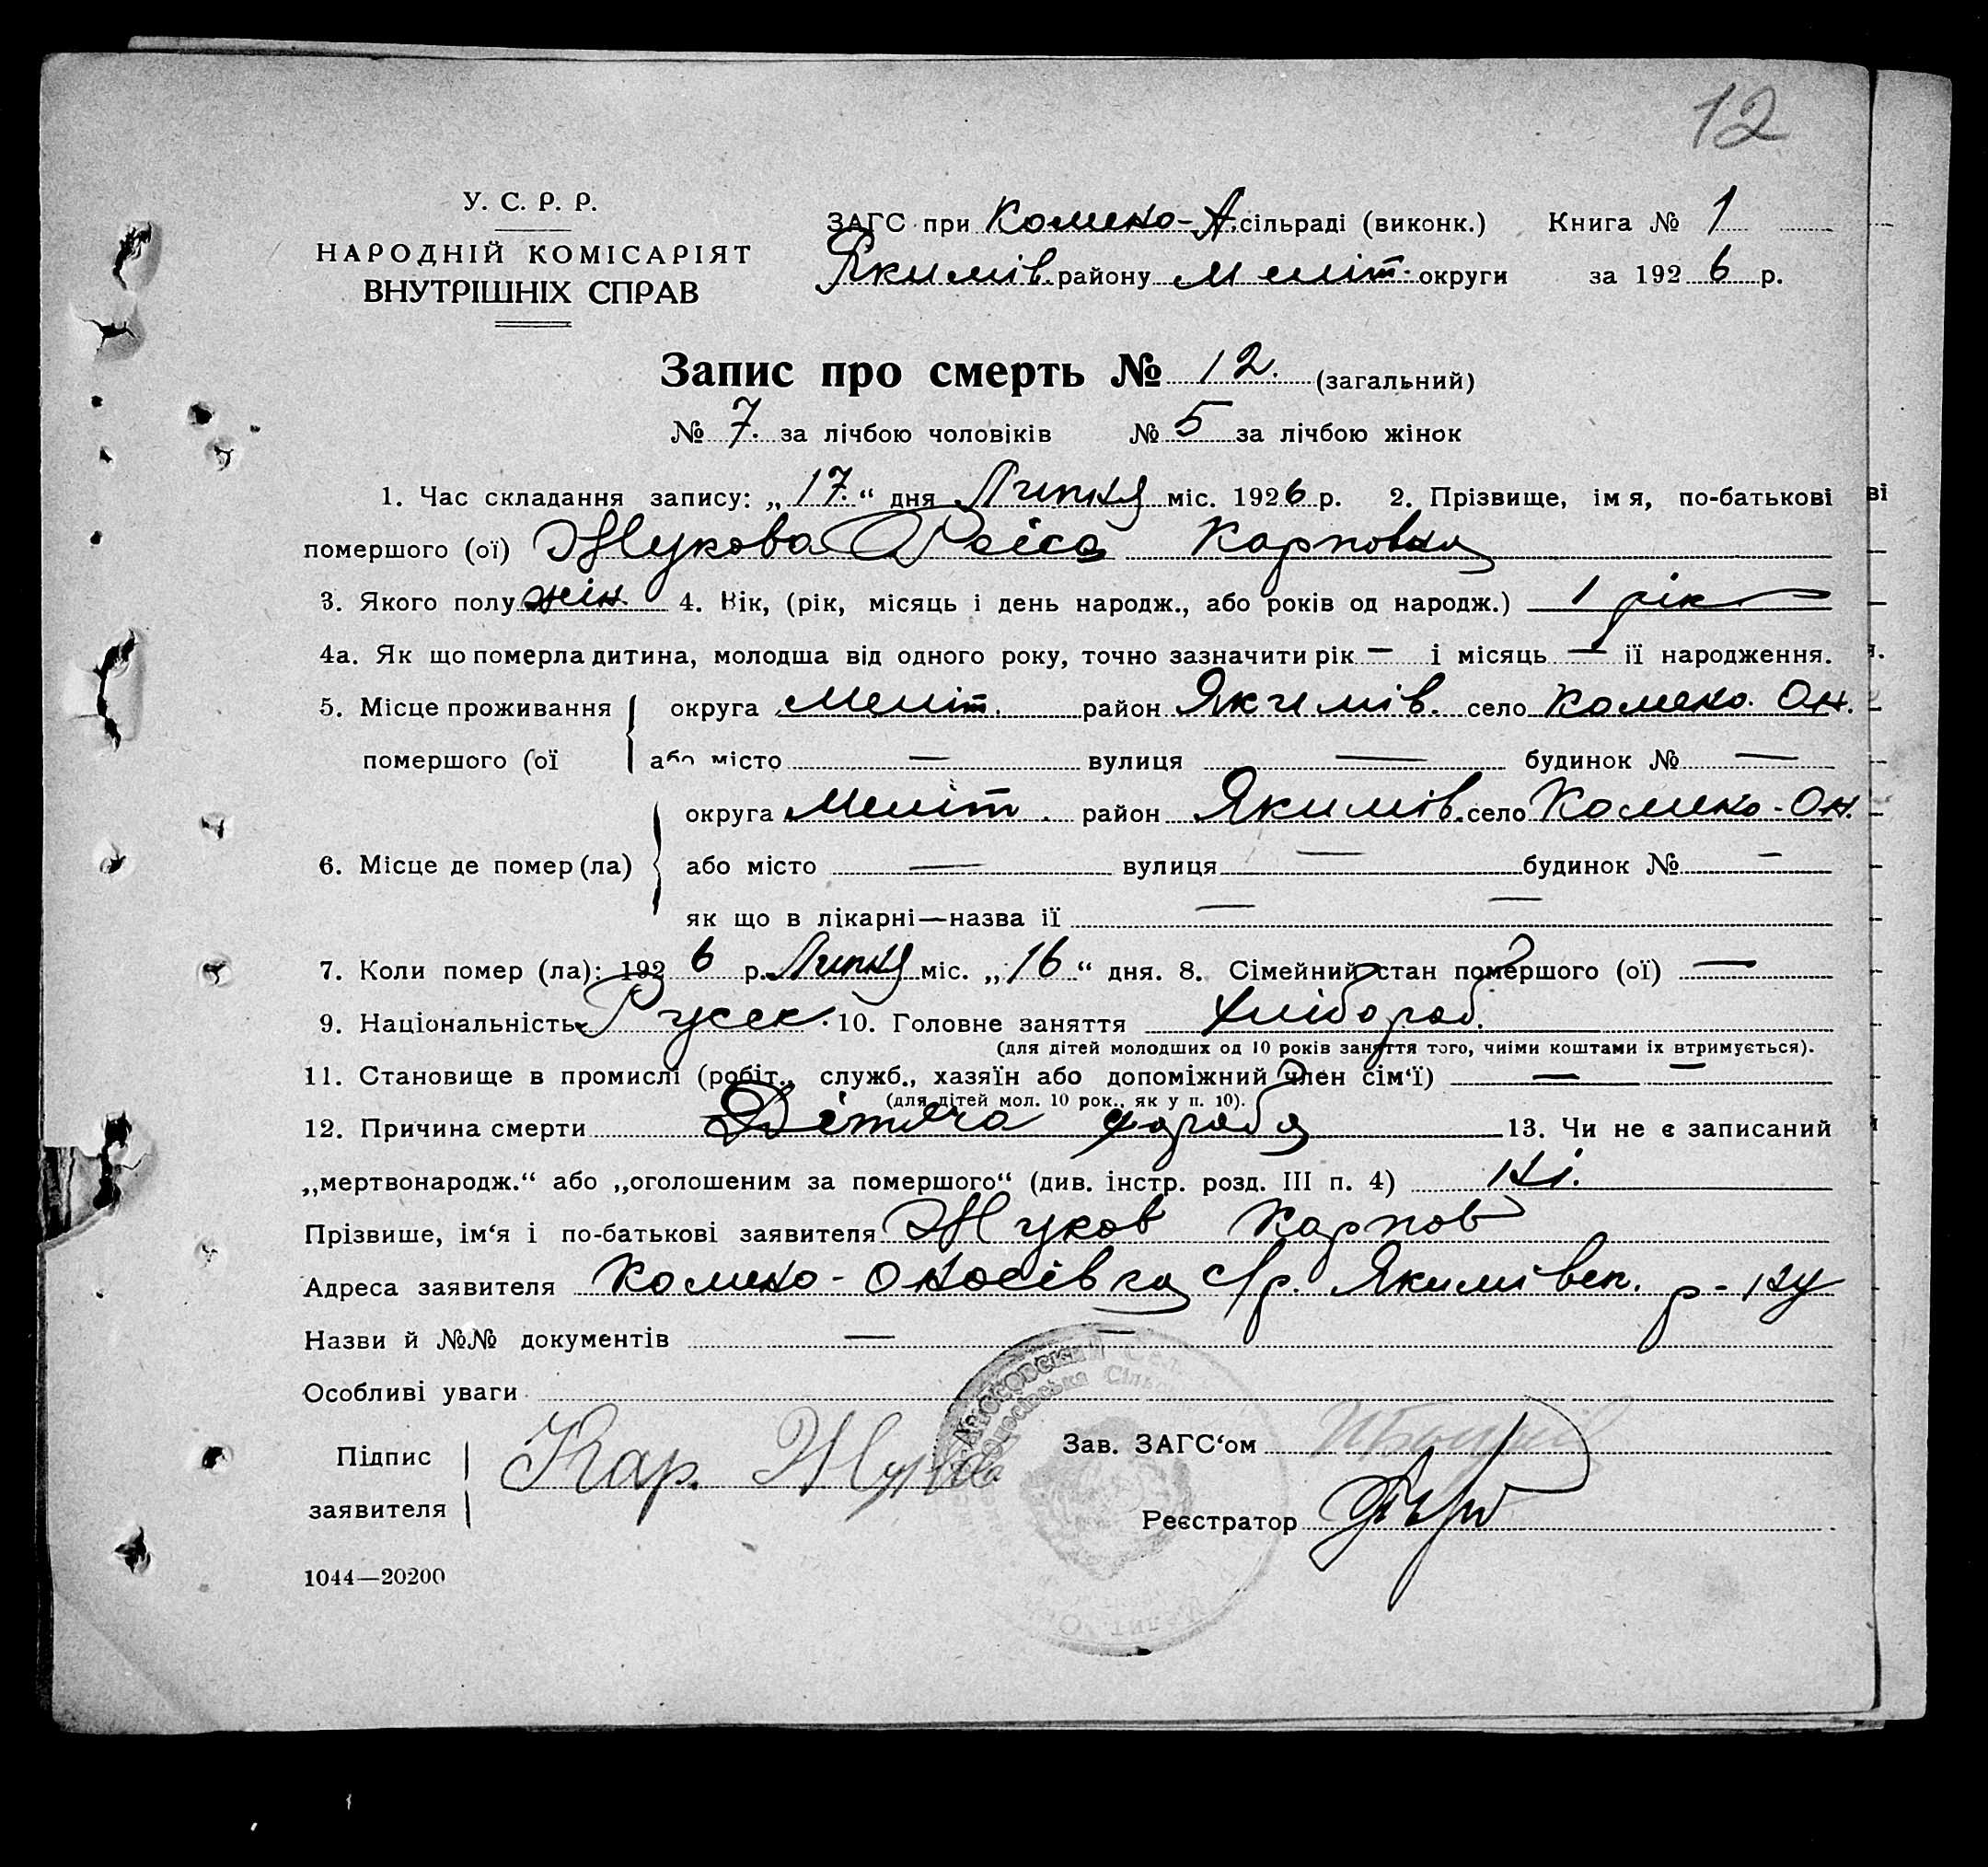 12
У. С. Р. Р.
НАРОДНІЙ КОМІСАРІЯТ
ВНУТРІШНІХ СПРАВ
ЗАГС при Комено-А. сільраді (виконк.) Книга № 1
Якимів. району Меліт. округи за 1926 р.
Запис про смерть № 12. (загальний)
№ 7. за лічбою чоловіків № 5 за лічбою жінок
1. Час складання запису: „17.“ дня Липня міс. 1926 р. 2. Прізвище, імя, по-батькові
помершого (ої) Жукова Раіса Карповна
3. Якого полу жін. 4. Вік, (рік, місяць і день народж., або років од народж.) 1 рік
4а. Як що померла дитина, молодша від одного року, точно зазначити рік — і місяць — ії народження.
5. Місце проживання округа Меліт. район Якимів. село Комено. Он.
помершого (ої або місто — вулиця — будинок № —
округа Меліт. район Якимів. село Комено-Он.
6. Місце де помер (ла) або місто — вулиця — будинок № —
як що в лікарні—назва ії — —
7. Коли помер (ла): 1926 р. Липня міс. „16“ дня. 8. Сімейний стан помершого (ої) —
9. Національність Русск. 10. Головне заняття Хлібороб.
(для дітей молодших од 10 років заняття того, чиїми коштами їх втримується).
11. Становище в промислі (робіт., служб., хазяїн або допоміжний член сім‘ї) — —
(для дітей мол. 10 рок., як у п. 10).
12. Причина смерти Дітяча хороба 13. Чи не є записаний
„мертвонародж.“ або „оголошеним за помершого“ (див. інстр. розд. III п. 4) Ні.
Прізвише, ім‘я і по-батькові заявителя Жуков Карпов
Адреса заявителя Комено-Оносівка с/р. Якимівск. р-ну
Назви й №№ документів — —
Особливі уваги
Підпис Кар. Жуков Зав. ЗАГС‘ом
заявителя Реєстратор
1044—20200